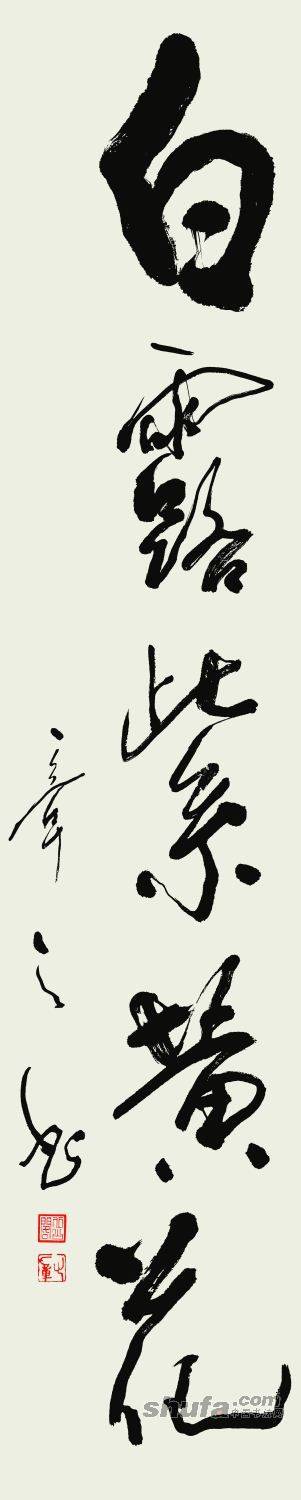 白露紫黄花
章之
shufa.com